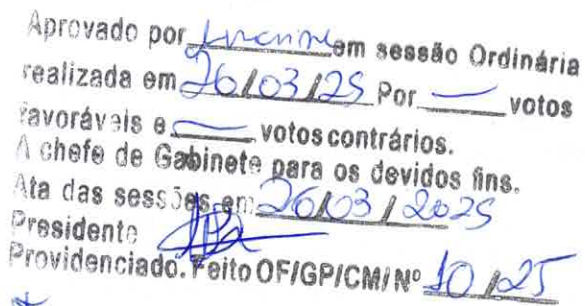 Aprovado por em sessão Ordinária
realizada em 26/03/25 Por — votos
favoráveis e — votos contrários.
A chefe de Gabinete para os devidos fins.
Ata das sessões em 26/03/2025
Presidente
Providenciado. Feito OF/GP/CM/ Nº 10/25